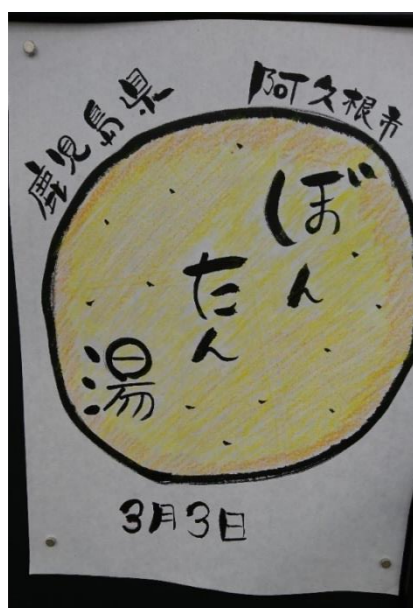 鹿児島県
阿久根市
ぼん
たん
湯
3月3日